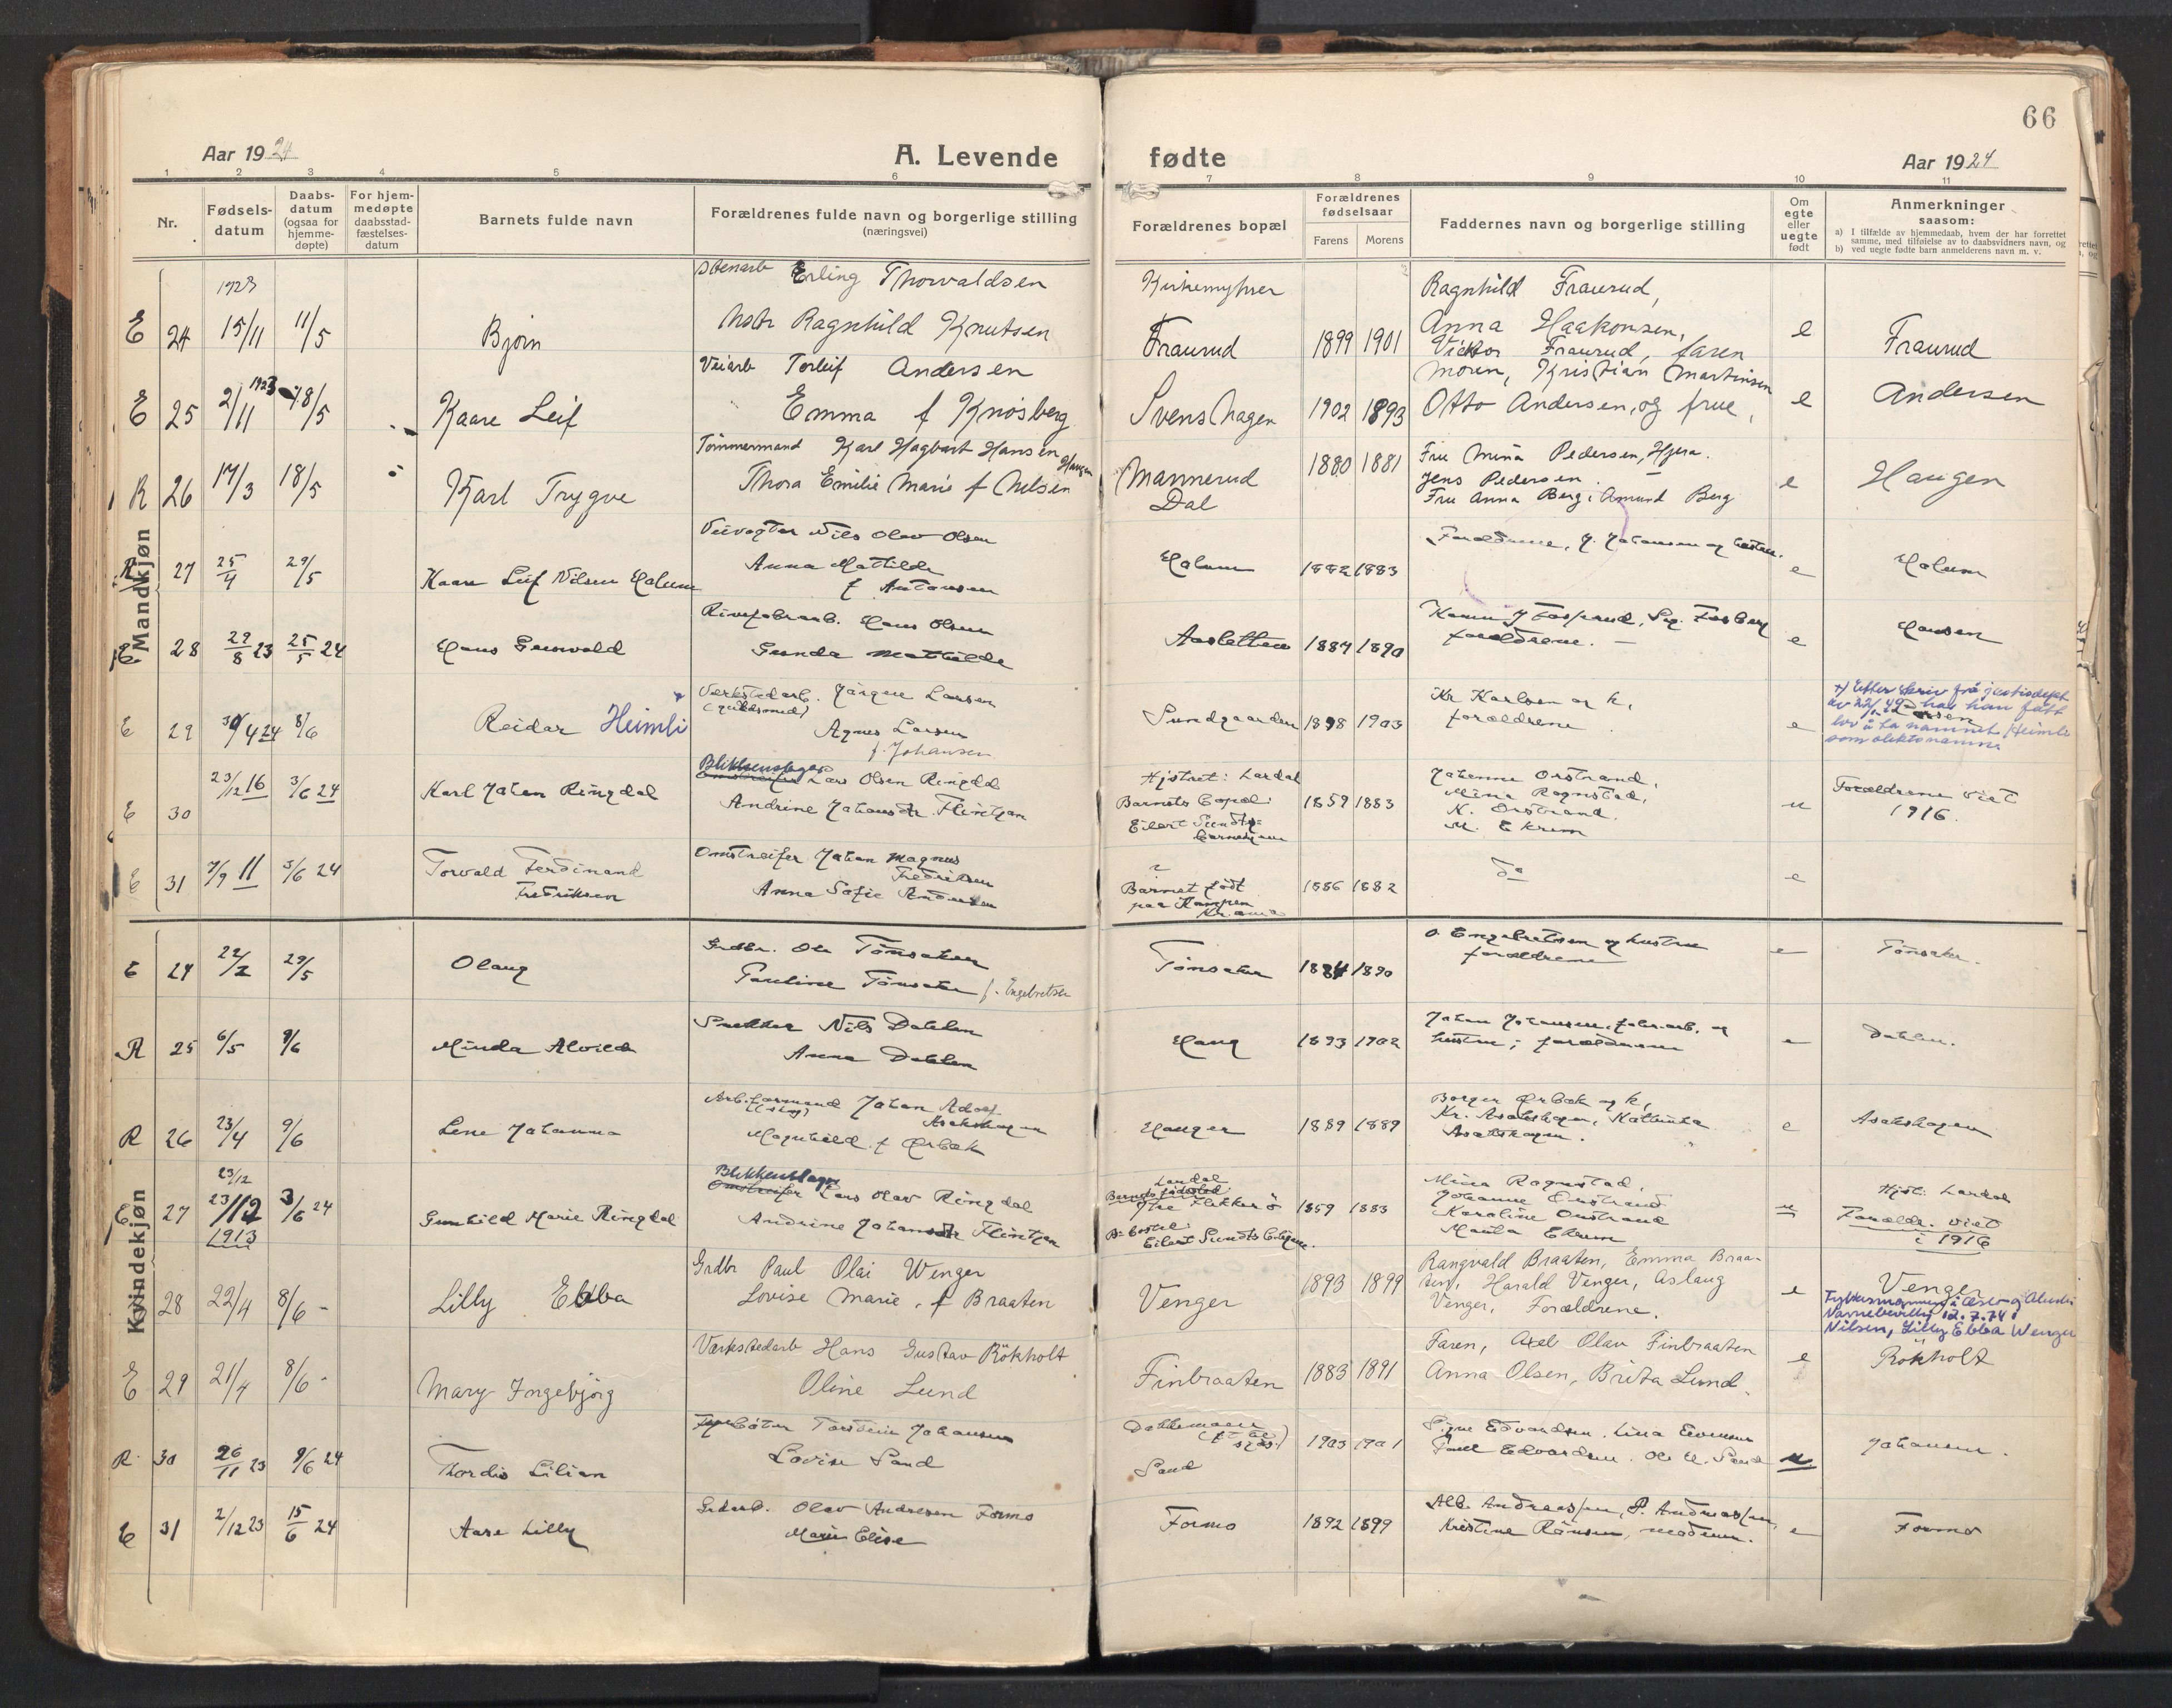 66
Aar 1924
A. Levende fødte
Aar 1924
1 2 3 4 5 6 7 8 9 10 11
Nr.
Fødsels-
datum
Daabs-
datum
(ogsaa for
hjemme-
døpte)
For hjem-
medøpte
daabsstad-
fæstelses-
datum
Barnets fulde navn
Forældrenes fulde navn og borgerlige stilling
(næringsvei)
Forældrenes bopæl
Forældrenes
fødselsaar
Farens Morens
Faddernes navn og borgerlige stilling
Om
egte
eller
uegte
født
Anmerkninger
saasom:
a) I tilfælde av hjemmedaab, hvem der har forrettet
samme, med tilføielse av to daabsvidners navn, og
b) ved uegte fødte barn anmelderens navn m. v.
Mandkjøn
1923
E 24 15/11 11/5 Bjørn
Stenarb Erling Thorvaldsen
Ragnhild Knutsen
Kirkemyhren
Fraurud
1899 1901
Ragnhild Fraurud,
Anna Haakonsen,
Victor Fraurud, faren
e Fraurud
E 25 2/11 1923 18/5 Kaare Leif
Veiarb Torleif Andersen
Emma f Knøsberg
Svenshagen
1902 1893
Moren, Kristian Martinsen
Otto Andersen, og frue,
e Andersen
R 26 17/3 18/5 Karl Trygve
Tømmermand Karl Hagbart Hansen Haugen
Thora Emilie Marie f Nilsen
Mannerud
Dal
1880 1881
Fru Mina Pedersen, Hjera.
Jens Pedersen.
Fru Anna Berg, Amund Berg
e Haugen
R 27 25/4 29/5 Kaare Leif Nilsen Holum
Veivogter Nils Olav Olsen
Anna Mathilde
f Antonsen
Holum
1882 1883
Forældrene, J. Johansen og hustru.
e Holum
E 28 29/8 23 25/5 24 Hans Grunvald
Hans Olsen
Gunda Mathilde
Aasletten
1884 1890
forældrene.
e Hansen
E 29 30/4 24 8/6 Reidar Heimli
Verkstedarb. Jørgen Larsen
(guldsmed)
Agnes Larsen
f. Johansen
Sundgaarden
1898 1903
Kr Karlsen og h,
forældrene
e
x) Etter skriv frå justisdept
av 22/12 49 har han fått
lov å ta namnet Heimli
som slektsnamn.
E 30 23/12 16 3/6 24 Karl Johan Ringdal
Blikkenslager
Omstreifer Lars Olsen Ringdal
Andrine Johansdtr. Flintzan
Hjstret: Lardal
Barnets bopæl:
Eilert Sundts
barnehjem
1859 1883
Johanne Orstrand,
Mina Rognstad,
K. Orstrand.
M. Ekrem
u
Forældrene viet
1916.
E 31 7/9 11 3/6 24 Torvald Ferdinand
Fredriksen
Omstreifer Johan Magnus
Fredriksen
Anna Sofie Andersen
Barnet født
paa Kampen
Kr.ania
1886 1882
do
e
Kvindekjøn
E 24 22/2 29/5 Olaug
Grdbr. Ole Tønsaker
Pauline Tønsaker f. Engebretsen
Tønsaker
1884 1890
O. Engebretsen og hustru
forældrene
e Tønsaker.
R 25 6/5 9/6 Minda Alvilde
Snekker Nils Dahlen
Anna Dahlen
Haug
1893 1902
Johan Johansen, fabr.arb, og
hustru; forældrene
e Dahlen.
R 26 23/4 9/6 Lene Johanna
Arb.formand Johan Adolf
Asakshagen
Magnhild f Ørbæk
Hanger
1889 1889
Borger Ørbæk og h,
Kr. Asakshagen, Kathinka
Asakshagen.
e Asakshagen
23/12
E 27 23/12 3/6 24 Gunhild Marie Ringdal
1913
Blikkenslager
Omstreifer Lars Olav Ringdal
Andrine Johansdtr Flintzan
Lardal
Barnets fødested:
Ytre Flekkerø
Eilert Sundts
1859 1883
Mina Rognstad,
Johanne Orstrand
Karoline Orstrand
Marta Ekrem
u
Hjst: Lardal
Forældr. viet
i 1916
E 28 22/4 8/6 - Lilly Ebba
Grdbr Paul Olai Wenger
Lovise Marie, f Braaten
Venger
1893 1899
Rangvald Braaten, Emma Braa-
ten, Harald Venger, Aslaug
Venger, Forældrene.
e Venger
Fylkesmannen i Oslo og Akershus
Navnebevilling 12.7.74:
Nilsen, Lilly Ebba Wenger
E 29 21/4 8/6 - Mary Ingebjørg
Værkstedarb Hans Gustav Rökholt
Oline Lund
Finbraaten
1883 1891
Faren, Axel Olav Finbraaten
Anna Olsen, Brita Lund.
e Rökholt
R 30 26/11 23 9/6 24 Thordis Lilian
Torstein Johansen
Lovise Sand
Sand
1903 1901
Signe Edvardsen, Lina Evensen
Paul Edvardsen. Ole H. Sand
u. Johansen.
E 31 2/12 23 15/6 24 Aase Lilly
Olav Andresen Formo
Marie Elise
Formo
1892 1899
Alb. Andreassen, P. Andreassen,
Kristine Rånsen, moderen.
e Formo